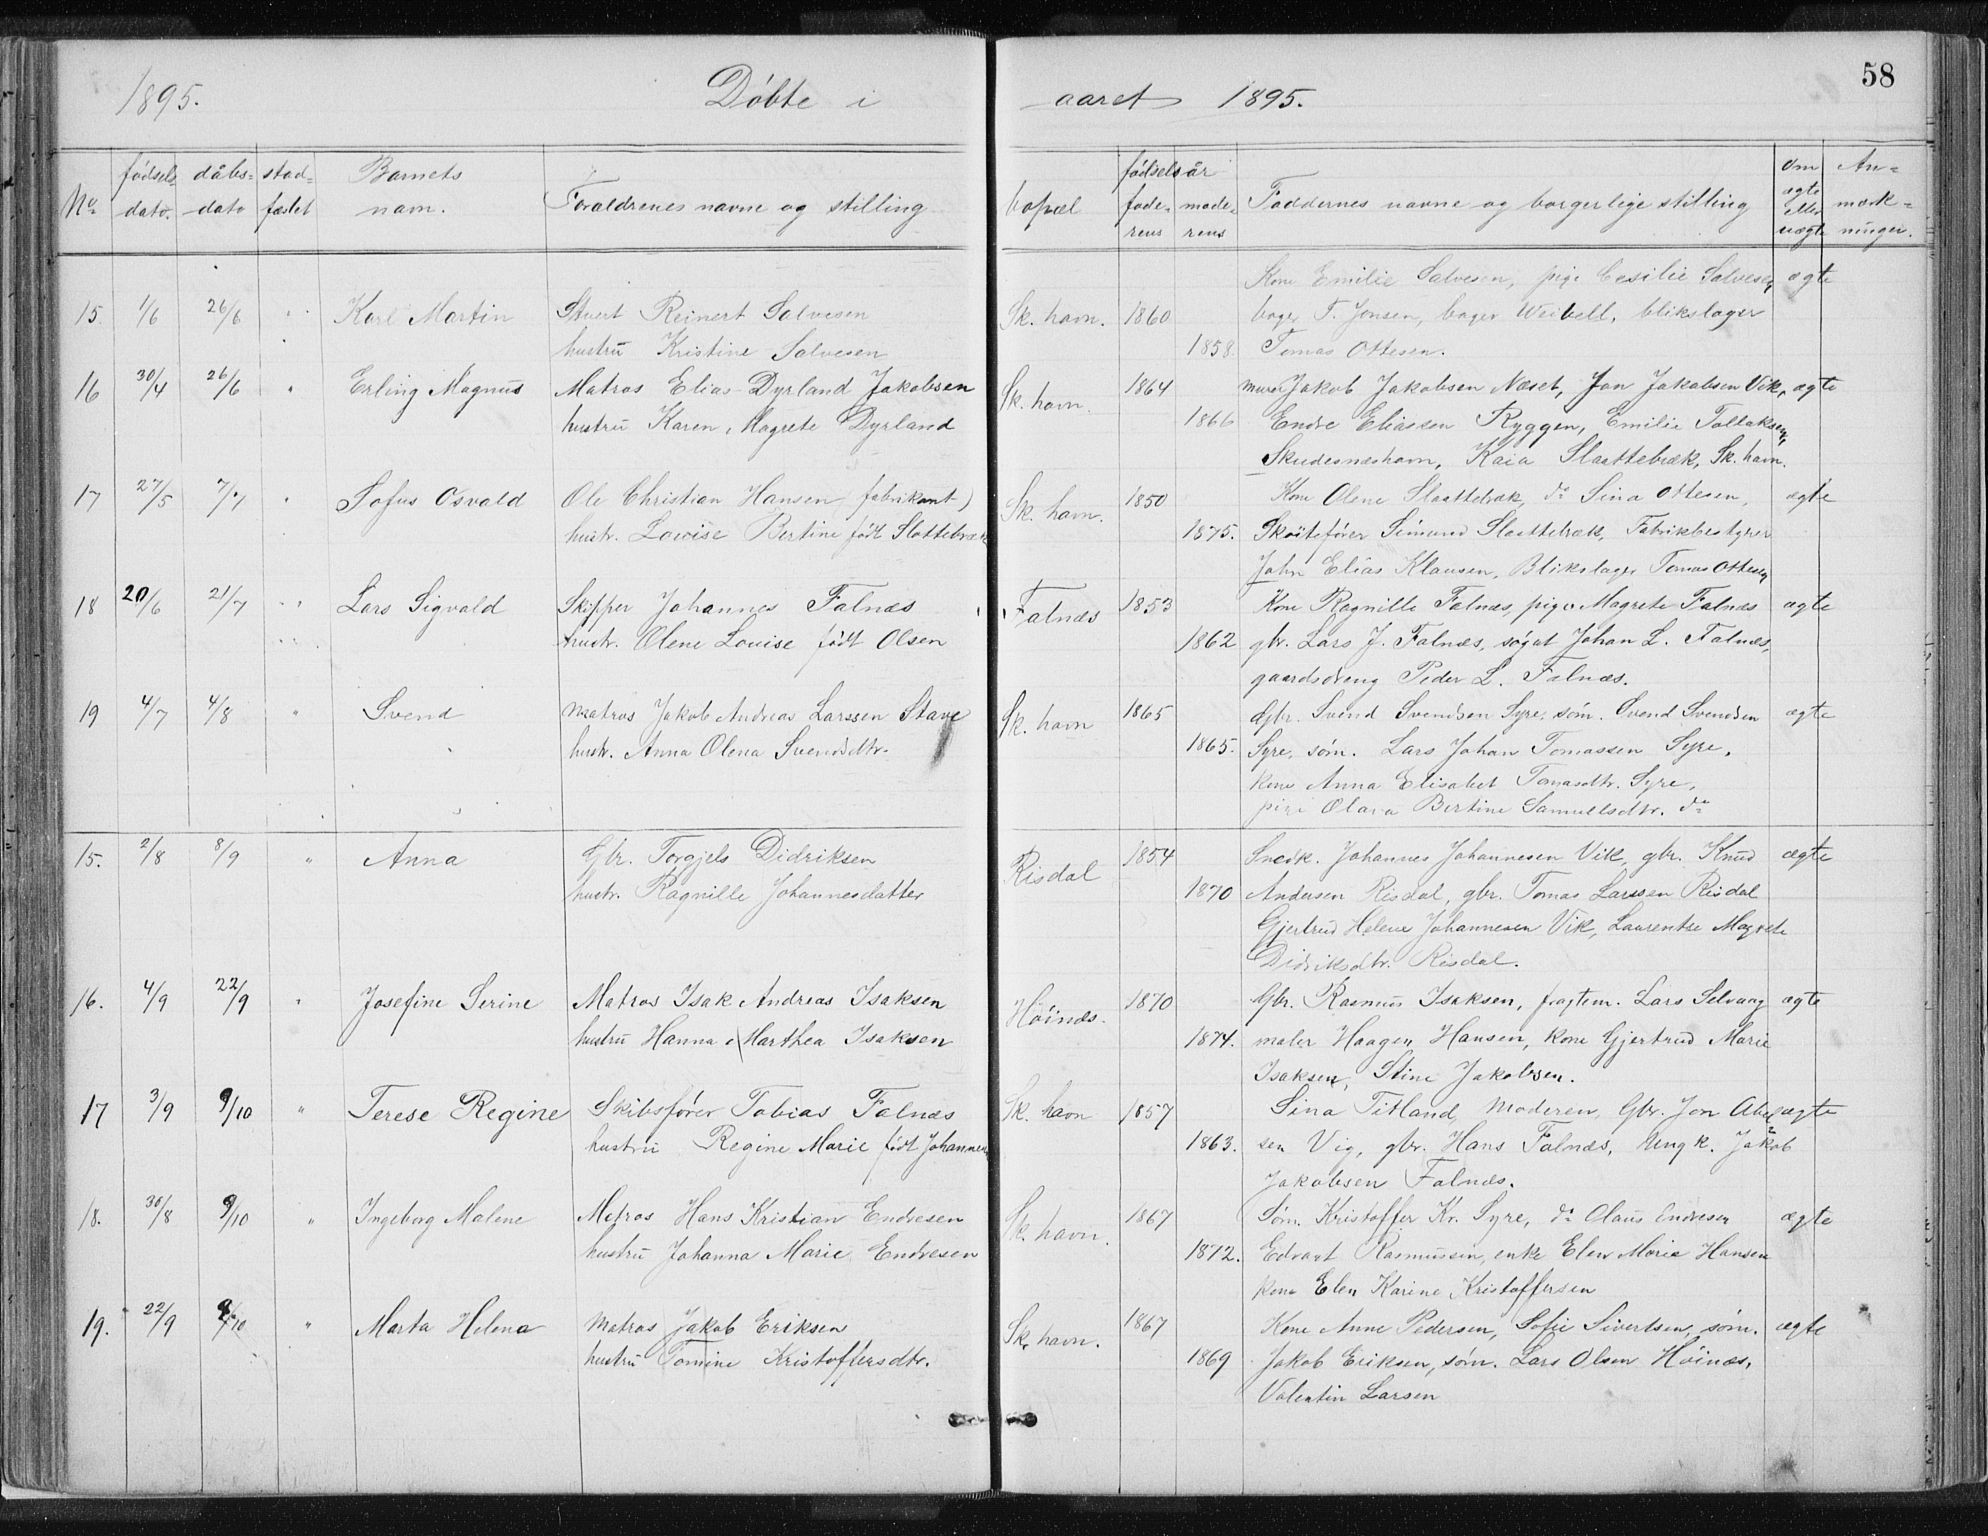 58
1895. Döbte i aaret 1895.
No. fødsels- dato. dåbs- dato stad- fæstet Barnets navn. Forældrenes navne og stilling bopæl fødselsår fade- rens mode- rens Faddernes navne og borgerlige stilling Om ægte eller uægte An- mærk- ninger.
15. 1/6 26/6 " Karl Martin Stuert Reinert Salvesen Sk. havn. 1860 Kone Emilie Salvesen, pige Cesilie Salvesen ægte
hustru Kristine Salvesen 1858. bager F. Jonsen, bager Weibell, blikslager
Tomas Ottesen.
16 30/4 26/6 " Erling Magnus Matros Elias Dyrland Jakobsen Sk. havn. 1864 Jakob Jakobsen Næset, Jon Jakobsen Vik, ægte
hustru Karen Magrete Dyrland 1866 Endre Eliassen Ryggen, Emilie Tollaksen,
Skudesneshavn, Kaia Slaattebræk, Sk. havn.
17 27/5 7/7 " Sofus Osvald Ole Christian Hansen fabrikant) Sk. havn. 1850 Kone Olene Slaattebræk, do Sina Ottesen, ægte
hustr. Lovise Bertine født Slottebræk 1875. Skøitefører Simund Slaattebræk, Fabrikbestyrer
John Elias Klausen, Blikslager Tomas Ottesen
18 20/6 21/7 " Lars Sigvald Skipper Johannes Falnæs Falnæs 1853 Kone Ragnille Falnæs, pige Magrete Falnæs ægte
hustr. Olene Louise født Olsen 1862 gbr. Lars J. Falnæs, Johan L. Falnæs,
gaardsdreng Peder L. Falnæs.
19 4/7 4/8 " Svend Matros Jakob Andreas Larssen Stave Sk. havn 1865 Gbr. Svend Svendsen Syre, søm. Svend Svendsen ægte
hustr. Anna Olena Svendsdtr. 1865. Syre, søm. Lars Johan Tomassen Syre,
kone Anna Elisabet Tomasdtr. Syre,
pige Olava Bertine Samuelsdtr. do
15. 2/8 8/9 " Anna Gbr. Torgjels Didriksen Risdal 1854 Snedk. Johannes Johannesen Vik, gbr. Knud ægte
hustr. Ragnille Johannesdatter 1870 Andersen Risdal, gbr. Tomas Larssen Risdal
Gjertrud Helene Johannesen Vik, Laurentse Magrete
Didriksdtr. Risdal.
16. 4/9 22/9 " Josefine Serine Matros Isak Andreas Isaksen Høinæs. 1870 Gbr. Rasmus Isaksen, fragtem. Lars Selvaag ægte
hustru Hanna Marthea Isaksen 1874. maler Haagen Hansen, kone Gjertrud Marie
Isaksen, Stine Jakobsen.
17 3/9 9/10 " Terese Regine Skibsfører Tobias Falnæs Sk. havn 1857 Sina Titland, Moderen, Gbr. Jon Abel- ægte
hustru Regine Marie født Johannesen 1863. sen Vig, gbr. Hans Falnæs, Ungk. Jakob
Jakobsen Falnæs.
18. 30/8 9/10 " Ingeborg Malene Matros Hans Kristian Endresen Sk. havn. 1867 Søm. Kristoffer Kr. Syre, do Olaus Endresen ægte
hustru Johanna Marie Endresen 1872. Edvart Rasmussen, enke Elen Marie Hansen
kone Elen Karine Kristoffersen
19. 22/9 /10 " Marta Helena Matros Jakob Eriksen Sk. havn. 1867 Kone Anne Pedersen, Sofie Sivertsen, søm. ægte
hustru Tomine Kristoffersdtr. 1869 Jakob Eriksen, søm. Lars Olsen Høinæs,
Valentin Larsen